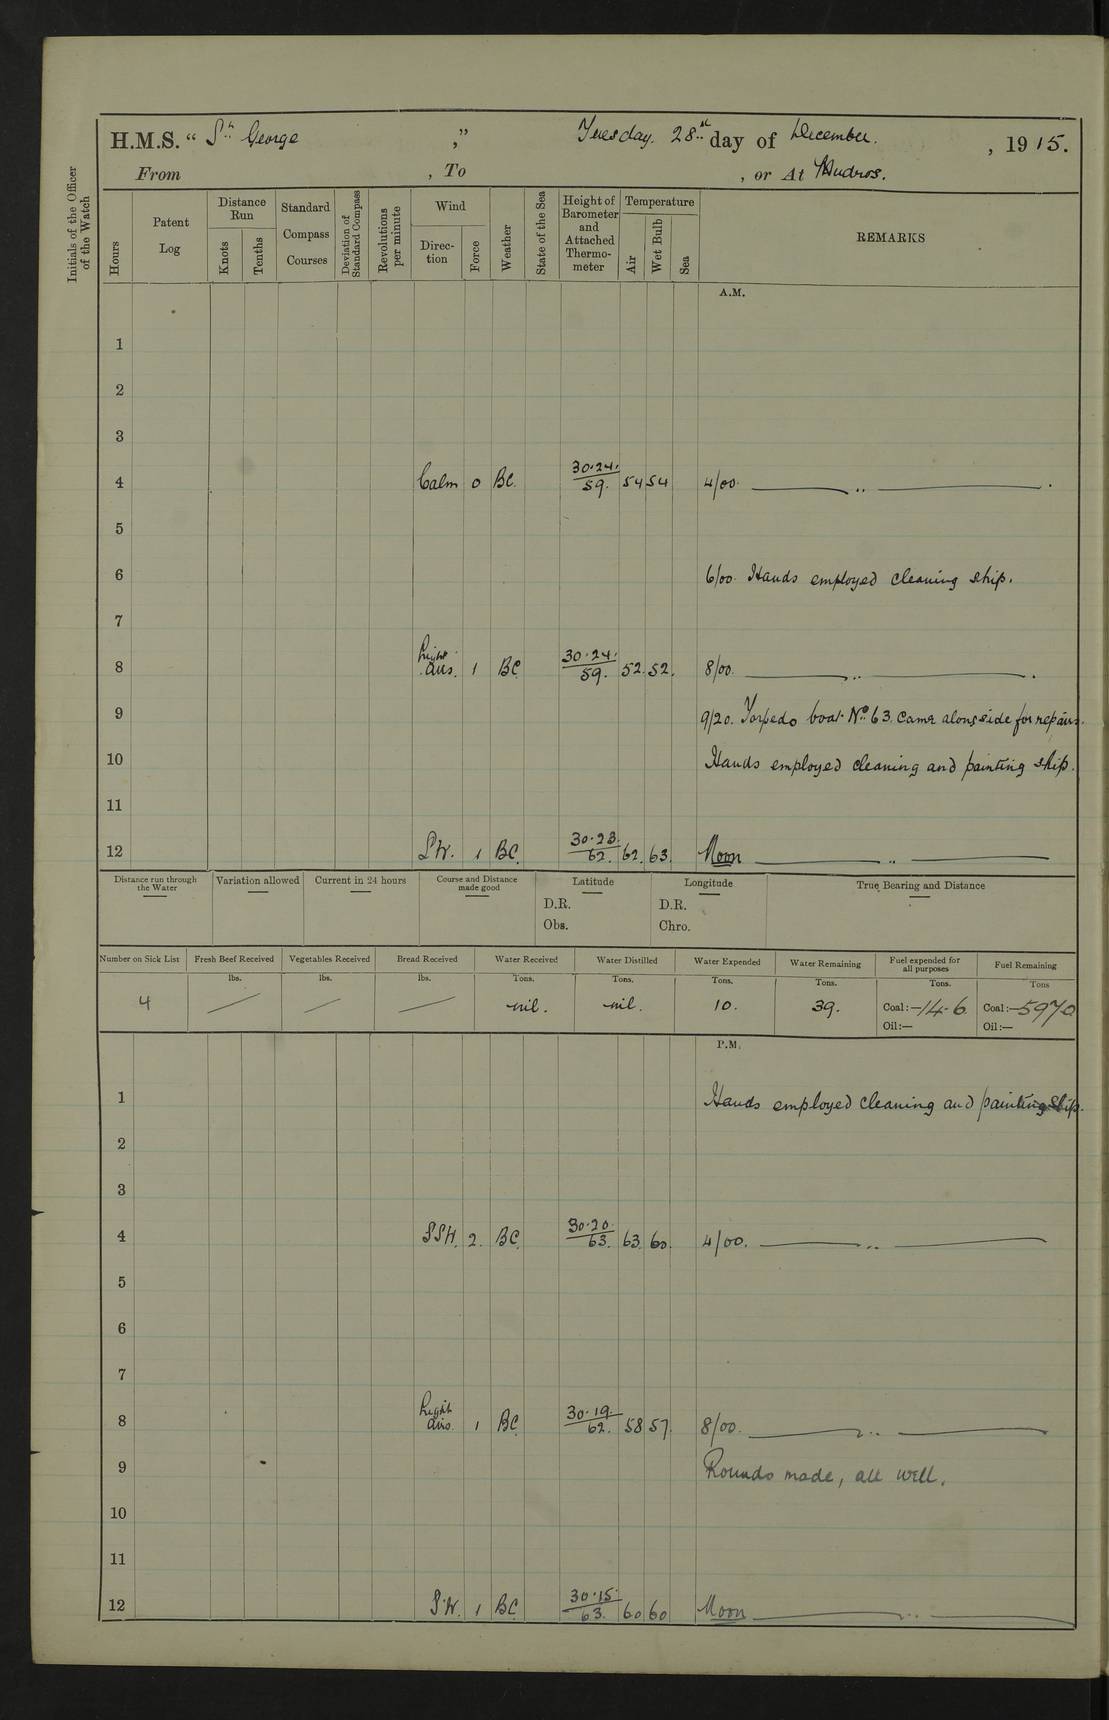 H.M.S. “ St George ,” Tuesday. 28st day of December. , 1915.
From , To , or At Mudros.
Initials of the Officer of the Watch
Hours
Patent Log
Distance Run
Knots
Tenths
Standard Compass Courses
Deviation of Standard Compass
Revolutions per minute
Wind
Direc-tion
Force
Weather
State of the Sea
Height of Barometer and Attached Thermo-meter
Temperature
Air
Wet Bulb
Sea
REMARKS
A.M.
1
2
3
4 Calm 0 BC. 30.24. 59. 54 54 4/00. ,, .
5
6 6/00. Hands employed cleaning ship.
7
8 Light airs. 1 BC 30.24. 59. 52. 52. 8/00. ,, .
9 9/20. Torpedo boat No 63 came alongside for repairs.
10 Hands employed cleaning and painting ship.
11
12 SW. 1 BC. 30.23. 62. 62. 63. Noon ,,
Distance run through the Water
Variation allowed
Current in 24 hours
Course and Distance made good
Latitude
D.R.
Obs.
Longitude
D.R.
Chro.
True Bearing and Distance
Number on Sick List Fresh Beef Received Vegetables Received Bread Received Water Received Water Distilled Water Expended Water Remaining Fuel expended for all purposes Fuel Remaining
lbs. lbs. lbs. Tons. Tons. Tons. Tons. Tons. Tons
4 — — — nil. nil. 10. 39. Coal:—14.6 Coal:—5970
Oil:— Oil:—
P.M.
1 Hands employed cleaning and painting ship.
2
3
4 SSW. 2. BC. 30.20. 63. 63. 60. 4/00. ,,
5
6
7
8 Light airs. 1 BC. 30.19. 62. 58 57. 8/00. ,,
9 Rounds made, all well.
10
11
12 S.W. 1 BC. 30.15. 63. 60 60 Noon ,,